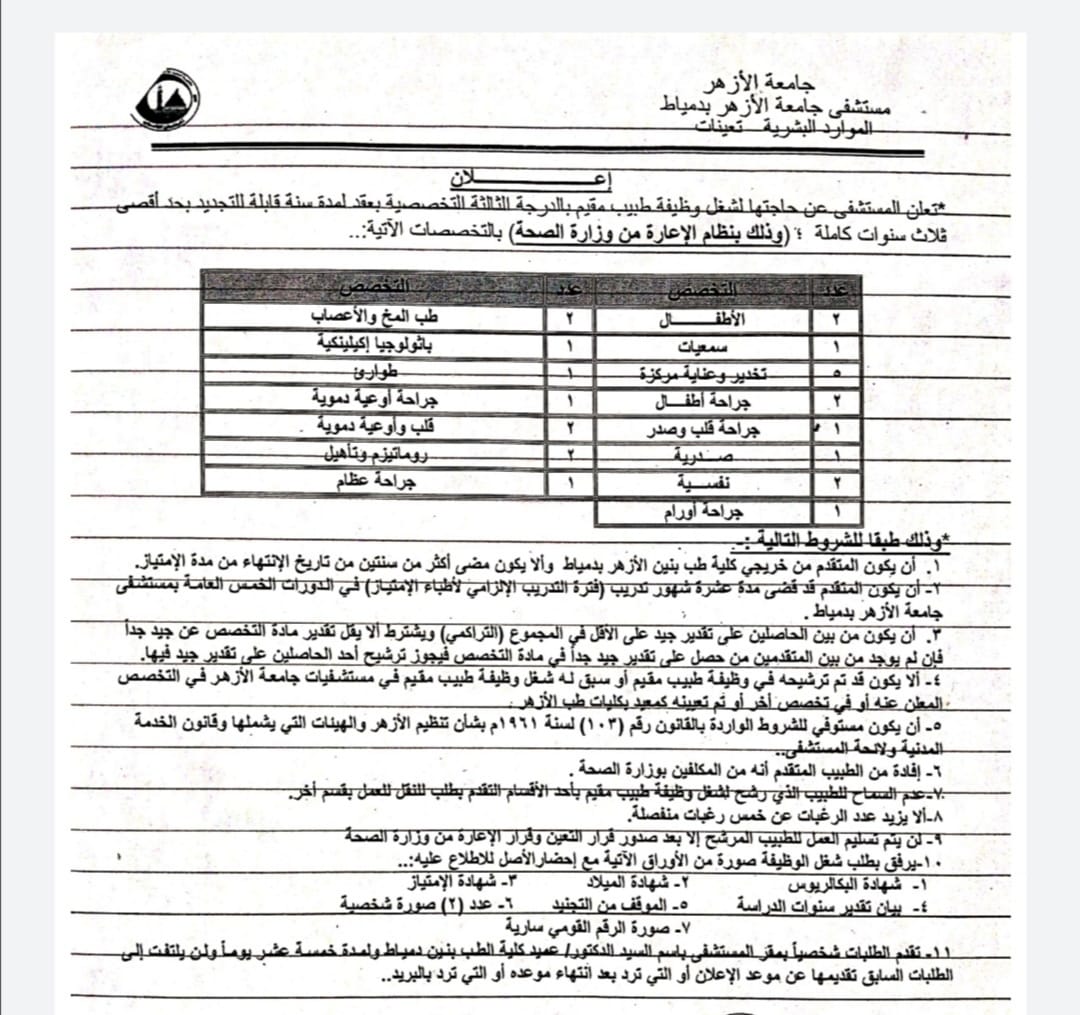 جامعة الأزهر
مستشفى جامعة الأزهر بدمياط
الموارد البشرية - تعينات
إعـــــــــــلان
*تعلن المستشفى عن حاجتها لشغل وظيفة طبيب مقيم بالدرجة الثالثة التخصصية بعقد لمدة سنة قابلة للتجديد بحد أقصى
ثلاث سنوات كاملة ؛ (وذلك بنظام الإعارة من وزارة الصحة) بالتخصصات الآتية:..
عدد التخصص عدد التخصص
٢ الأطفـــــال ٢ طب المخ والأعصاب
١ سمعيات ١ باثولوجيا إكيلينكية
٥ تخدير وعناية مركزة ١ طوارئ
٢ جراحة أطفـــال ١ جراحة أوعية دموية
١ جراحة قلب وصدر ٢ قلب وأوعية دموية
١ صـــدرية ٢ روماتيزم وتأهيل
٢ نفسية ١ جراحة عظام
١ جراحة أورام
*وذلك طبقا للشروط التالية :-
١. أن يكون المتقدم من خريجي كلية طب بنين الأزهر بدمياط وألا يكون مضى أكثر من سنتين من تاريخ الإنتهاء من مدة الإمتياز.
٢- أن يكون المتقدم قد قضى مدة عشرة شهور تدريب (فترة التدريب الإلزامي لأطباء الإمتياز) في الدورات الخمس العامة بمستشفى
جامعة الأزهر بدمياط .
٣. أن يكون من بين الحاصلين على تقدير جيد على الأقل في المجموع (التراكمي) ويشترط ألا يقل تقدير مادة التخصص عن جيد جداً
فإن لم يوجد من بين المتقدمين من حصل على تقدير جيد جداً في مادة التخصص فيجوز ترشيح أحد الحاصلين على تقدير جيد فيها.
٤- ألا يكون قد تم ترشيحه في وظيفة طبيب مقيم أو سبق له شغل وظيفة طبيب مقيم في مستشفيات جامعة الأزهر في التخصص
المعلن عنه أو في تخصص أخر أو تم تعيينه كمعيد بكليات طب الأزهر .
٥- أن يكون مستوفي للشروط الواردة بالقانون رقم (١٠٣) لسنة ١٩٦١م بشأن تنظيم الأزهر والهيئات التي يشملها وقانون الخدمة
المدنية ولائحة المستشفى..
٦- إفادة من الطبيب المتقدم أنه من المكلفين بوزارة الصحة .
٧-عدم السماح للطبيب الذي رشح لشغل وظيفة طبيب مقيم بأحد الأقسام التقدم بطلب للنقل للعمل بقسم أخر.
٨-ألا يزيد عدد الرغبات عن خمس رغبات منفصلة.
٩- لن يتم تسليم العمل للطبيب المرشح إلا بعد صدور قرار التعين وقرار الإعارة من وزارة الصحة
١٠-يرفق بطلب شغل الوظيفة صورة من الأوراق الآتية مع إحضارالأصل للاطلاع عليه:..
١- شهادة البكالريوس ٢- شهادة الميلاد ٣- شهادة الإمتياز
٤- بيان تقدير سنوات الدراسة ٥- الموقف من التجنيد ٦- عدد (٢) صورة شخصية
٧- صورة الرقم القومي سارية
١١- تقدم الطلبات شخصياً بمقر المستشفى باسم السيد الدكتور/ عميد كلية الطب بنين دمياط ولمدة خمسة عشر يوماً ولن يلتفت إلى
الطلبات السابق تقديمها عن موعد الإعلان أو التي ترد بعد انتهاء موعده أو التي ترد بالبريد..